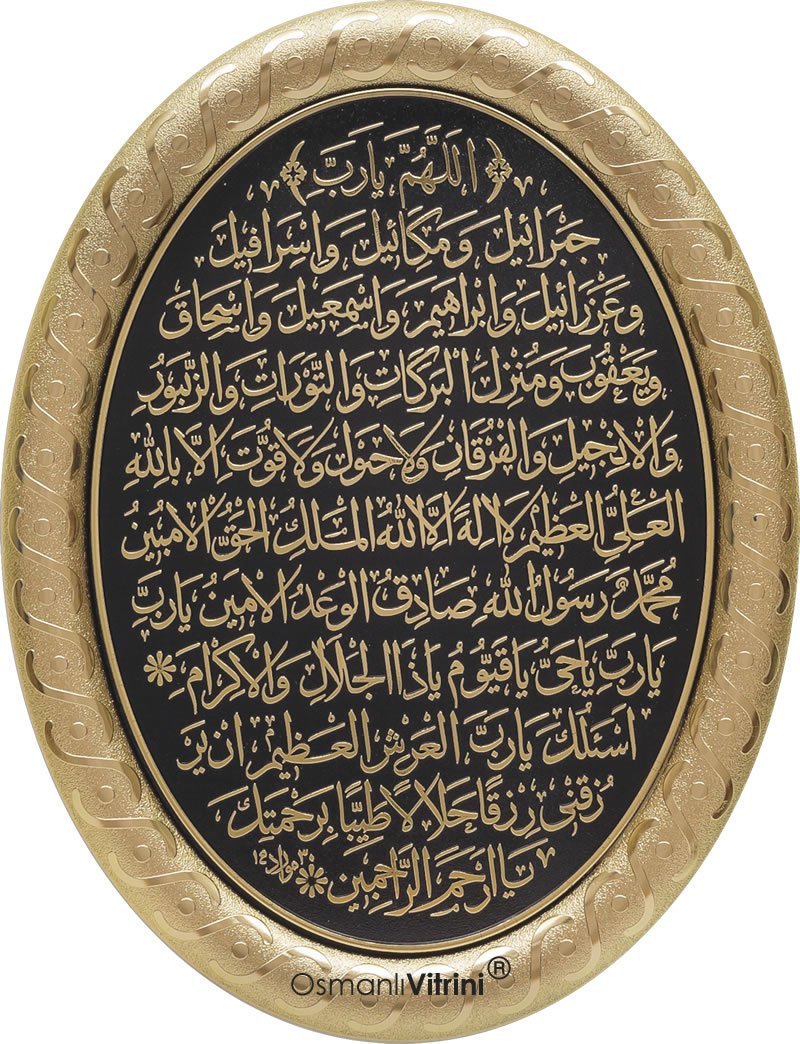 ﴿ اَللّٰهُمَّ يَارَبَّ ﴾
جَبْرَائِيلَ وَمِكَائِيلَ وَاِسْرَافِيلَ
وَعَزْرَائِيلَ وَاِبْرَاهِيمَ وَاِسْمَعِيلَ وَاِسْحَاقَ
وَيَعْقُوبَ وَمُنْزِلَ الْبَرَكَاتِ وَالتَّوْرَاتِ وَالزَّبُورِ
وَالْاِنْجِيلِ وَالْفُرْقَانِ وَلَا حَوْلَ وَلَا قُوَّتَ اِلَّا بِاللّٰهِ
الْعَلِىِّ الْعَظِيمِ لَا اِلٰهَ اِلَّا اللّٰهُ الْمَلِكُ الْحَقُّ الْاَمُبِينُ
مُحَمَّدٌ رَسُولُ اللّٰهِ صَادِقُ الْوَعْدُ الْاَمِينُ يَارَبِّ
يَارَبِّ يَاحَىُّ يَاقَيُّومُ يَاذَا الْجَلَالِ وَالْاِكْرَامَ ❊
اَسْئَلُكَ يَارَبَّ الْعَرْشِ الْعَظِيمِ اَنْ يَرْ
زُقَنِى رِزْقًا حَلَالًا طَيِّبًا بِرَحْمَتِكَ
يَا اَرْحَمَ الرَّاحِمِينَ ❊
OsmanlıVitrini®